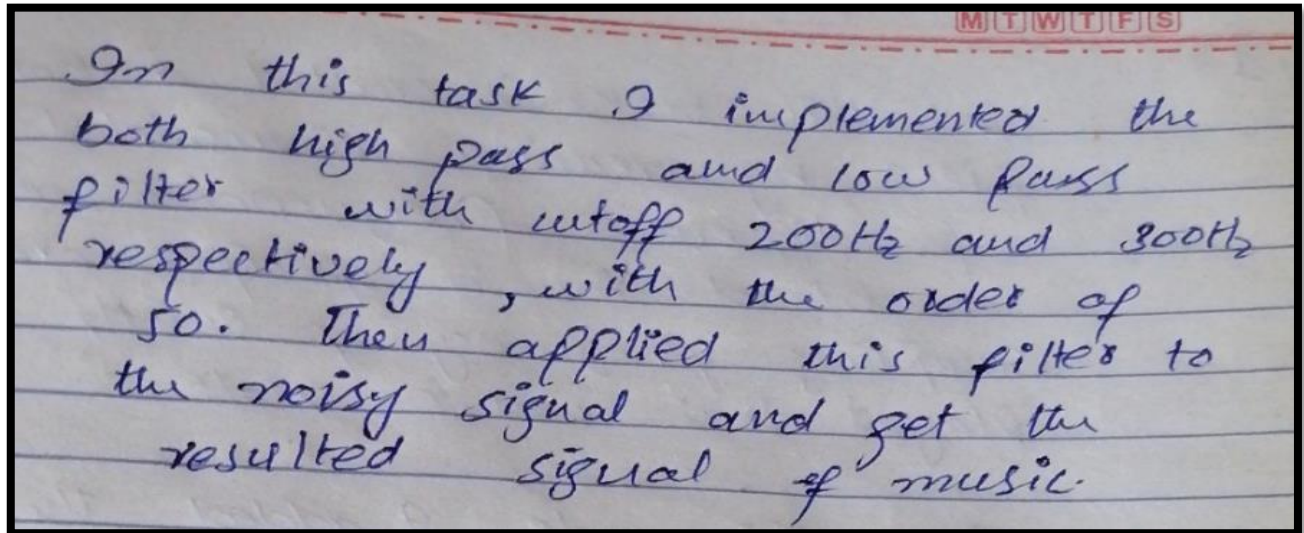 M T W T F S
In this task I implemented the
both high pass and low pass
filter with cutoff 200Hz and 300Hz
respectively, with the order of
50. Then applied this filter to
the noisy signal and get the
resulted signal of music.